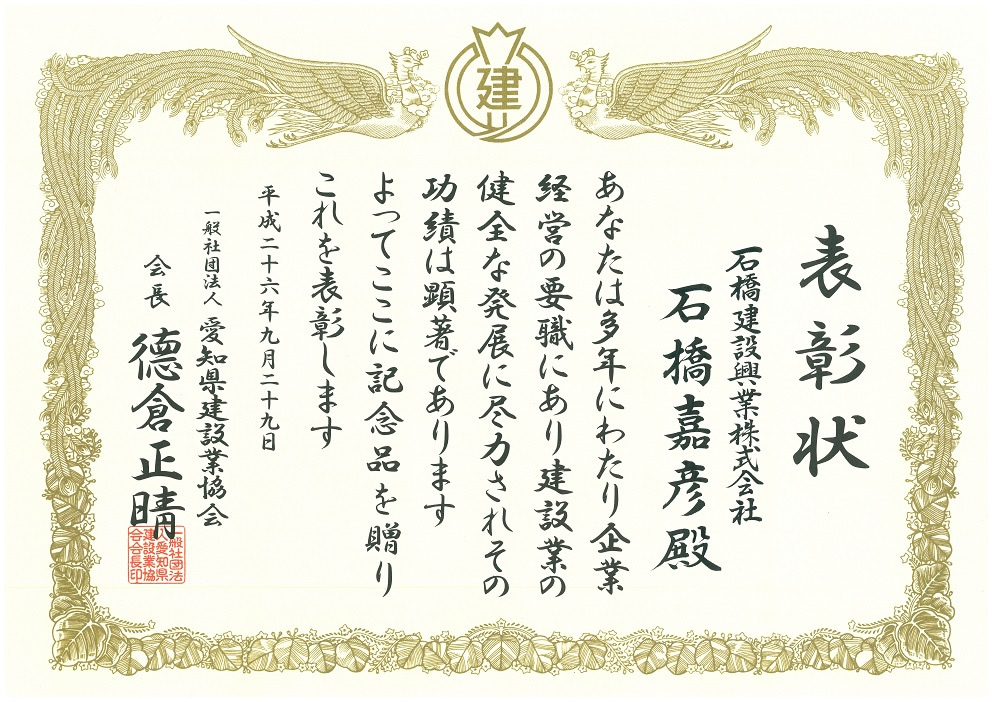 建
表彰状
石橋建設興業株式会社
石橋嘉彦殿
あなたは多年にわたり企業
経営の要職にあり建設業の
健全な発展に尽力されその
功績は顕著であります
よってここに記念品を贈り
これを表彰します
平成二十六年九月二十九日
一般社団法人 愛知県建設業協会
会長 德倉正晴
一般社団法
人愛知県
建設業協
会会長印